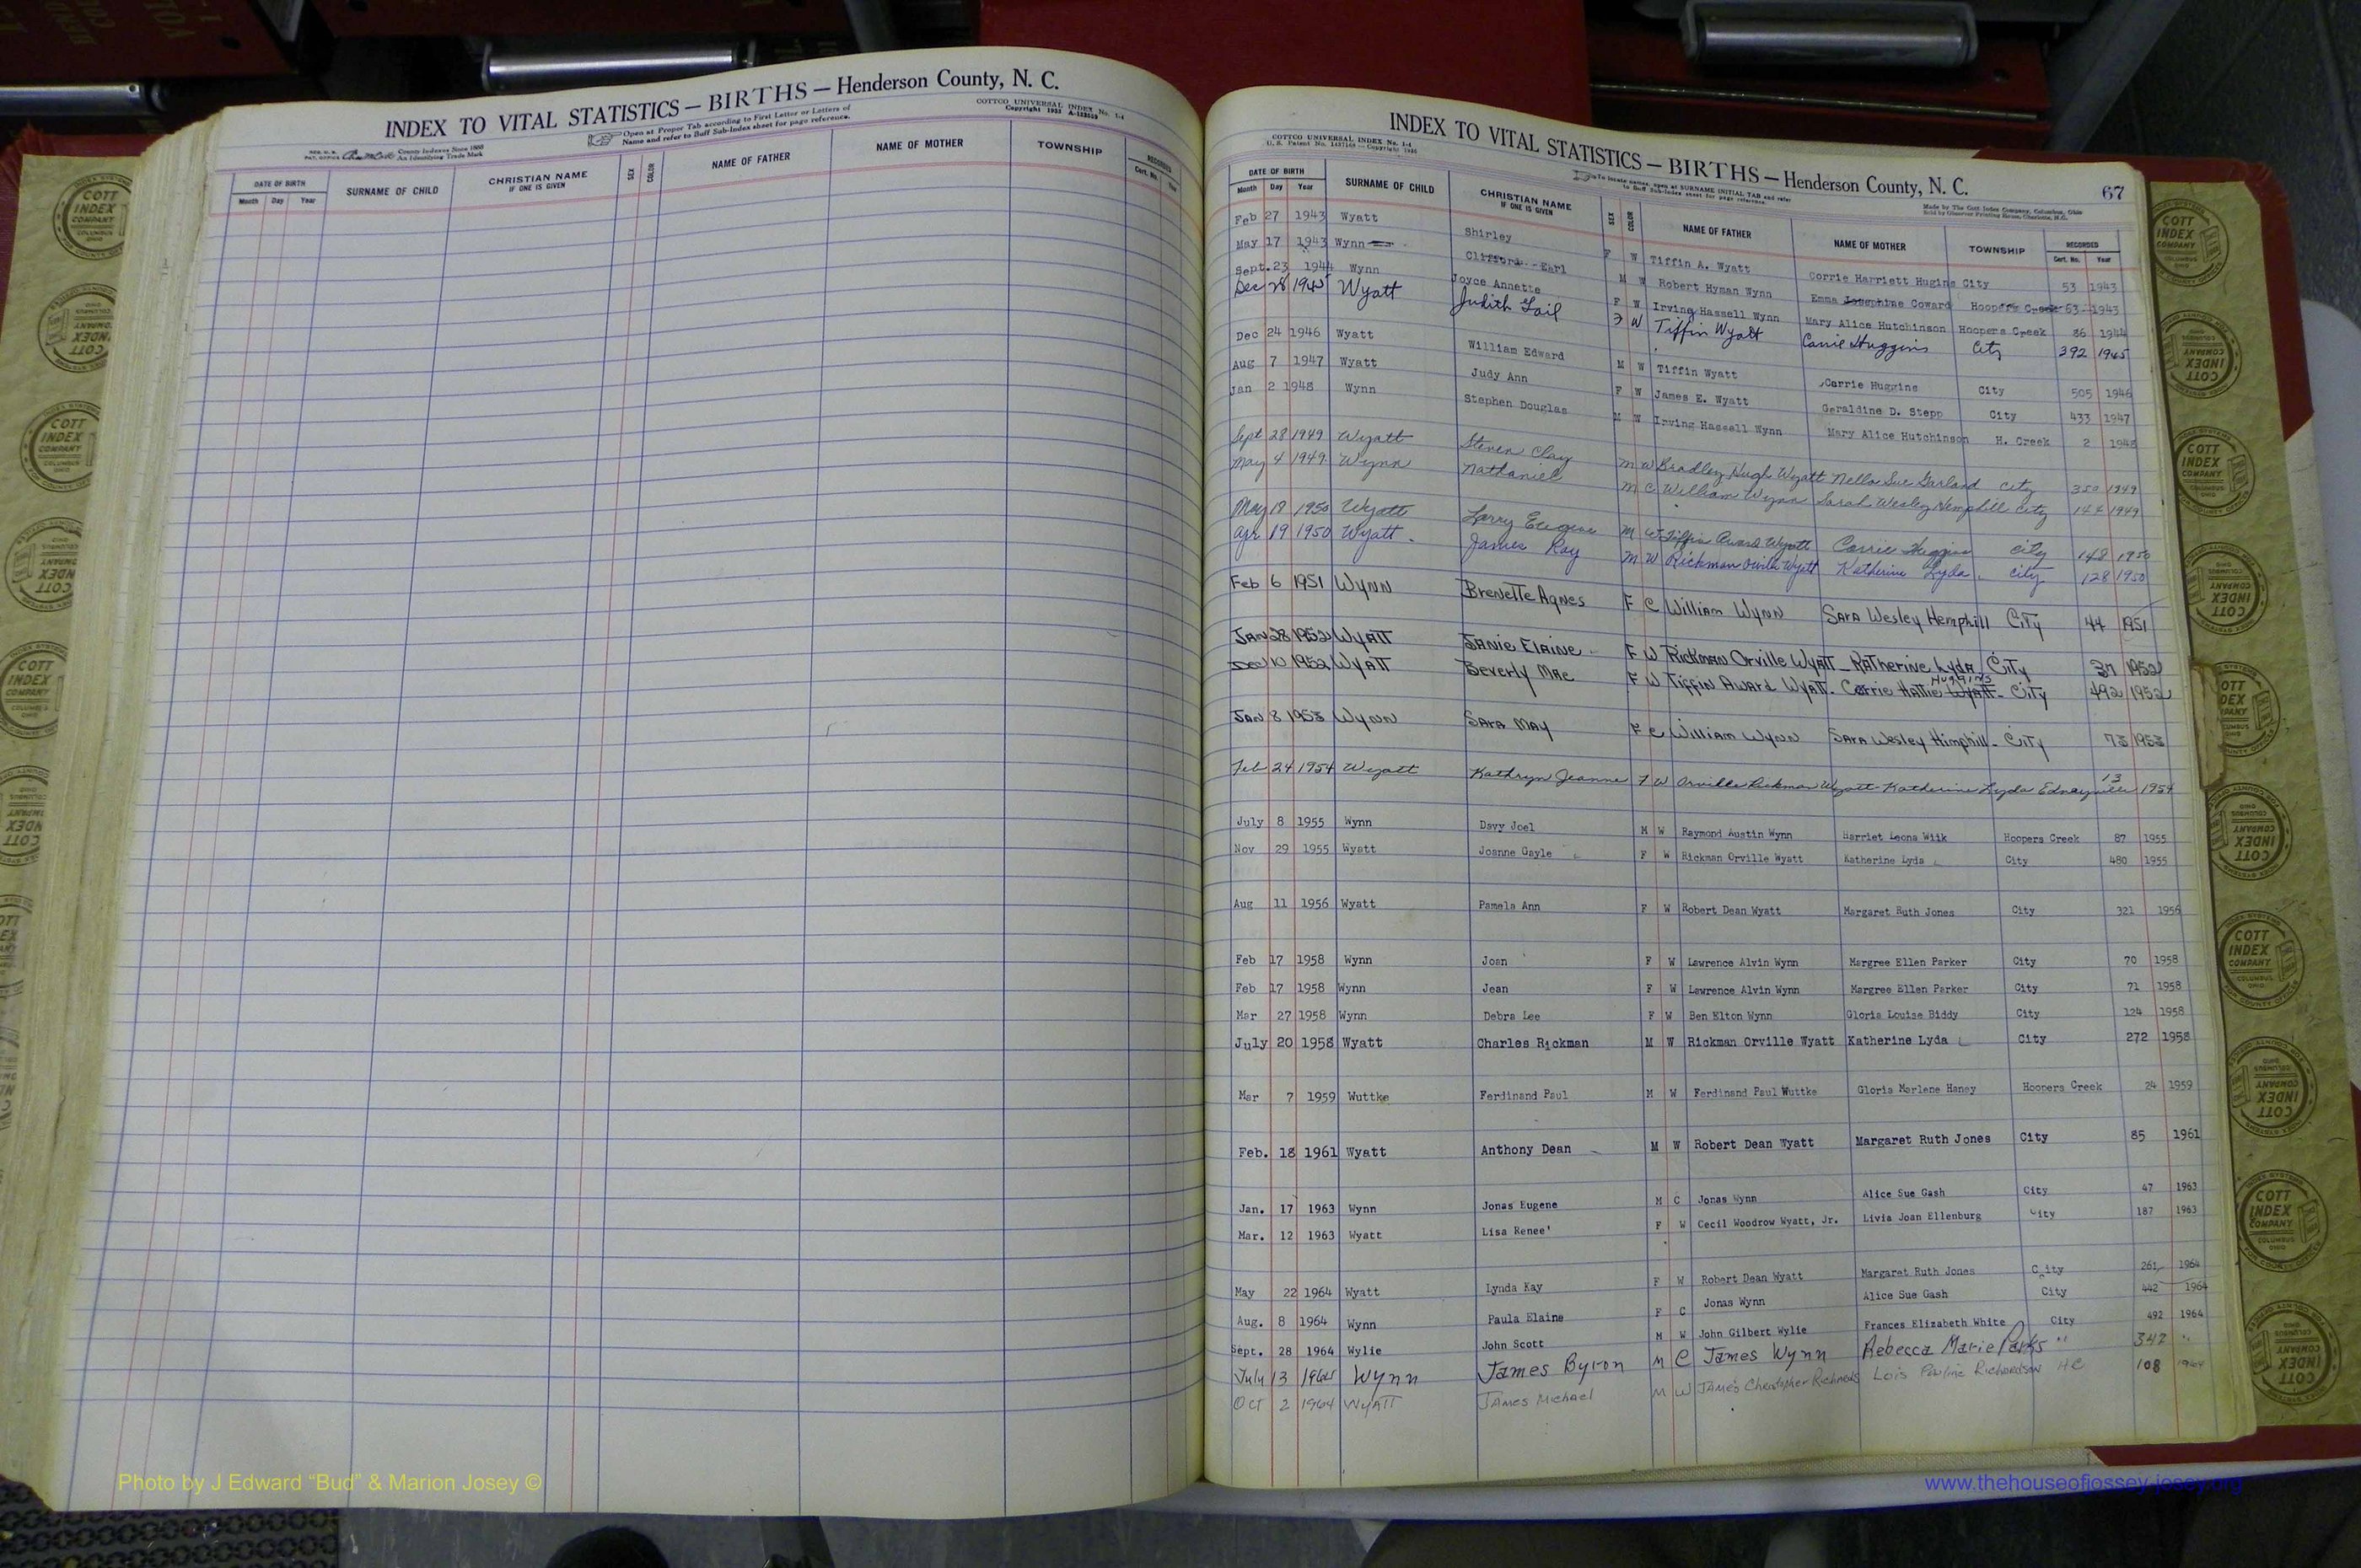 INDEX TO VITAL STATISTICS — BIRTHS — Henderson County, N. C.
Open at Proper Tab according to First Letter or Letters of
Name and refer to Buff Sub-Index sheet for page reference.
COTTCO UNIVERSAL INDEX No. 1-4
County Indexes Since 1888
An Identifying Trade Mark
DATE OF BIRTH SURNAME OF CHILD CHRISTIAN NAME IF ONE IS GIVEN SEX COLOR NAME OF FATHER NAME OF MOTHER TOWNSHIP RECORDED
Month Day Year Cert. No.
INDEX TO VITAL STATISTICS — BIRTHS — Henderson County, N. C. 67
COTTCO UNIVERSAL INDEX No. 1-4
To locate names, open at SURNAME INITIAL TAB and refer
to Buff Sub-Index sheet for page reference.
Made by The Cott Index Company, Columbus, Ohio
Sold by Observer Printing House, Charlotte, N.C.
DATE OF BIRTH SURNAME OF CHILD CHRISTIAN NAME IF ONE IS GIVEN SEX COLOR NAME OF FATHER NAME OF MOTHER TOWNSHIP RECORDED
Month Day Year Cert. No. Year
Feb 27 1943 Wyatt Shirley F W Tiffin A. Wyatt Corrie Harriett Hugins City 53 1943
May 17 1943 Wynn Clifford Earl M W Robert Hyman Wynn Emma Josephine Coward Hoopers Creek 53 1943
Sept. 23 1944 Wynn Joyce Annette F W Irving Hassell Wynn Mary Alice Hutchinson Hoopers Creek 86 1944
Dec 28 1945 Wyatt Judith Gail F W Tiffin Wyatt Carrie Huggins City 392 1945
Dec 24 1946 Wyatt William Edward M W Tiffin Wyatt Carrie Huggins City 505 1946
Aug 7 1947 Wyatt Judy Ann F W James E. Wyatt Geraldine D. Stepp City 433 1947
Jan 2 1948 Wynn Stephen Douglas M W Irving Hassell Wynn Mary Alice Hutchinson H. Creek 2 1948
Sept 28 1949 Wyatt Steven Clay M W Bradley Hugh Wyatt Nella Sue Garland City 350 1949
May 4 1949 Wynn Nathaniel M C William Wynn Sarah Wesley Hemphill City 1949
May 18 1950 Wyatt Larry Eugene M W Tiffin Award Wyatt Corrie Huggins City 148 1950
Apr 19 1950 Wyatt James Ray M W Rickman Orville Wyatt Katherine Lyda City 128 1950
Feb 6 1951 Wynn Brenette Agnes F C William Wynn Sara Wesley Hemphill City 44 1951
Jan 28 1952 Wyatt Janie Elaine F W Rickman Orville Wyatt Katherine Lyda City 37 1952
Dec 10 1952 Wyatt Beverly Mae F W Tiffin Award Wyatt Corrie Hattie Wyatt Huggins City 492 1952
Jan 8 1953 Wynn Sara May F C William Wynn Sara Wesley Himphill City 73 1953
Feb 24 1954 Wyatt Kathryn Jeanne F W Orville Rickman Wyatt Katherine Lyda Edneyville 13 1954
July 8 1955 Wynn Davy Joel M W Raymond Austin Wynn Harriet Leona Wiik Hoopers Creek 87 1955
Nov 29 1955 Wyatt Joanne Gayle F W Rickman Orville Wyatt Katherine Lyda City 480 1955
Aug 11 1956 Wyatt Pamela Ann F W Robert Dean Wyatt Margaret Ruth Jones City 321 1956
Feb 17 1958 Wynn Joan F W Lawrence Alvin Wynn Margree Ellen Parker City 70 1958
Feb 17 1958 Wynn Jean F W Lawrence Alvin Wynn Margree Ellen Parker City 71 1958
Mar 27 1958 Wynn Debra Lee F W Ben Elton Wynn Gloria Louise Biddy City 124 1958
July 20 1958 Wyatt Charles Rickman M W Rickman Orville Wyatt Katherine Lyda City 272 1958
Mar 7 1959 Wuttke Ferdinand Paul M W Ferdinand Paul Wuttke Gloria Marlene Haney Hoopers Creek 24 1959
Feb. 18 1961 Wyatt Anthony Dean M W Robert Dean Wyatt Margaret Ruth Jones City 85 1961
Jan. 17 1963 Wynn Jonas Eugene M C Jonas Wynn Alice Sue Gash City 47 1963
Mar. 12 1963 Wyatt Lisa Renee' F W Cecil Woodrow Wyatt, Jr. Livia Joan Ellenburg City 187 1963
May 22 1964 Wyatt Lynda Kay F W Robert Dean Wyatt Margaret Ruth Jones City 261 1964
Aug. 8 1964 Wynn Paula Elaine F C Jonas Wynn Alice Sue Gash City 442 1964
Sept. 28 1964 Wylie John Scott M W John Gilbert Wylie Frances Elizabeth White City 492 1964
July 13 1964 Wynn James Byron M C James Wynn Rebecca Marie Parks " 342 "
Oct 2 1964 Wyatt James Michael M W James Christopher Lois Pauline Richardson HC 108 1964
Photo by J Edward “Bud” & Marion Josey ©
www.thehouseofjossey-josey.org